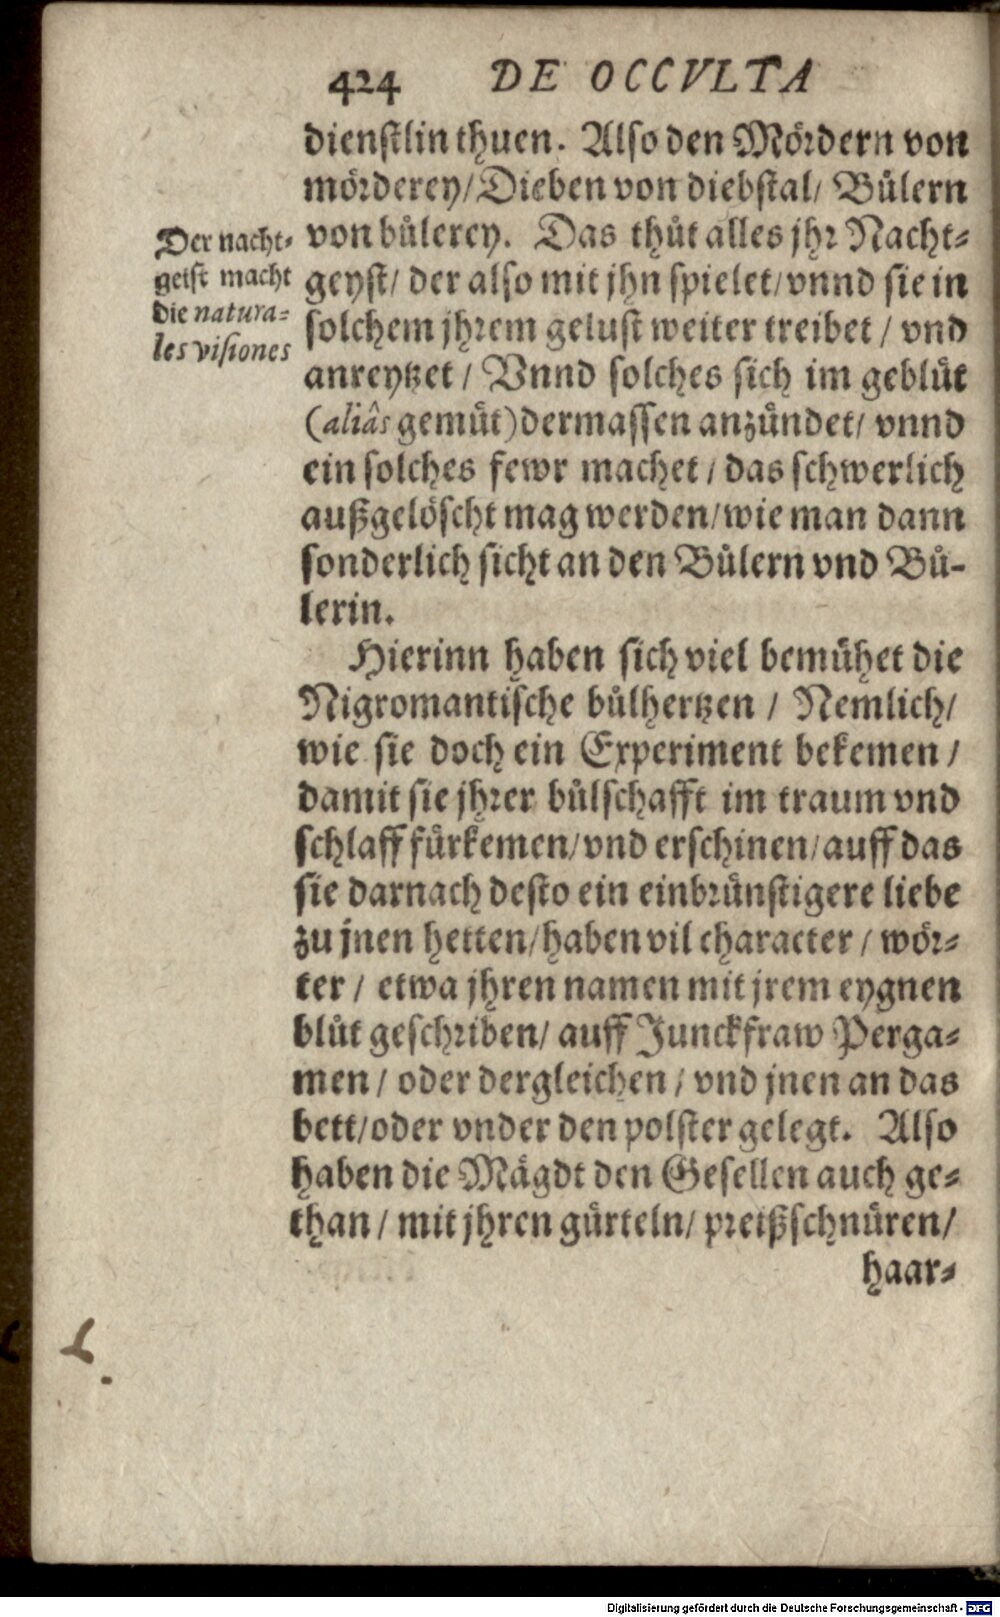 424 DE OCCVLTA
dienstlin thuen. Also den Mördern von
mörderey/ Dieben von diebstal/ Bůlern
von bůlerey. Das thůt alles jhr Nacht-
geyst/ der also mit jhn spielet/ vnnd sie in
solchem jhrem gelust weiter treibet / vnd
anreytzet / Vnnd solches sich im geblůt
(aliâs gemůt) dermassen anzündet/ vnnd
ein solches fewr machet / das schwerlich
außgelöscht mag werden/ wie man dann
sonderlich sicht an den Bůlern vnd Bů-
lerin.
Der nacht-
geist macht
die natura-
les visiones
Hierinn haben sich viel bemühet die
Nigromantische bůlhertzen / Nemlich/
wie sie doch ein Experiment bekemen /
damit sie jhrer bůlschafft im traum vnd
schlaff fürkemen/ vnd erschinen/ auff das
sie darnach desto ein einbrünstigere liebe
zu jnen hetten/ haben vil character / wör-
ter / etwa jhren namen mit jrem eygnen
blůt geschriben/ auff Junckfraw Perga-
men / oder dergleichen / vnd jnen an das
bett/ oder vnder den polster gelegt. Also
haben die Mägdt den Gesellen auch ge-
than / mit jhren gürteln/ preißschnüren/
haar-
Digitalisierung gefördert durch die Deutsche Forschungsgemeinschaft - DFG